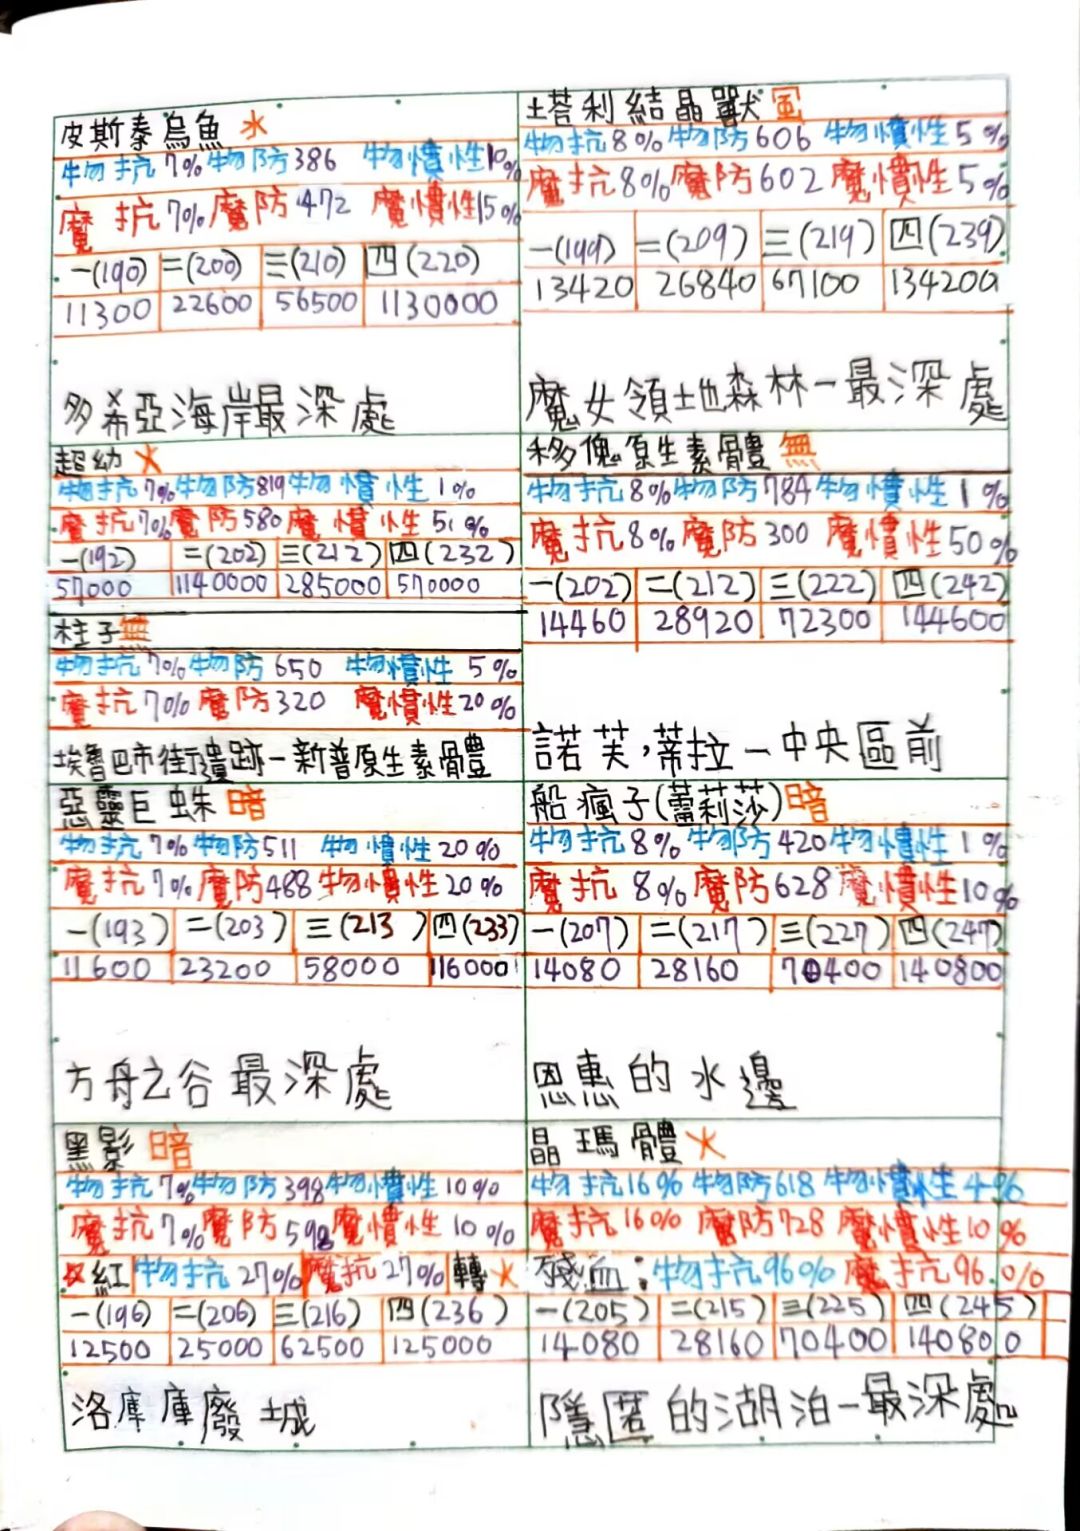 皮斯泰烏魚 水
物抗7% 物防386 物慣性10%
魔抗7% 魔防472 魔慣性15%
一(190) 二(200) 三(210) 四(220)
11300 22600 56500 1130000
多希亞海岸最深處
超幼 火
物抗7% 物防819 物慣性1%
魔抗7% 魔防580 魔慣性5%
一(192) 二(202) 三(212) 四(232)
57000 1140000 285000 570000
柱子 無
物抗7% 物防650 物慣性5%
魔抗7% 魔防320 魔慣性20%
埃魯巴市街遺跡一新普原生素體
惡靈巨蛛 暗
物抗7% 物防511 物慣性20%
魔抗7% 魔防488 物慣性20%
一(193) 二(203) 三(213) 四(233)
11600 23200 58000 116000
方舟之谷最深處
黑影 暗
物抗7% 物防398 物慣性10%
魔抗7% 魔防598 魔慣性10%
紅 物抗27% 魔抗27% 轉火
一(196) 二(206) 三(216) 四(236)
12500 25000 62500 125000
洛摩庫廢城
塔利結晶獸 風
物抗8% 物防606 物慣性5%
魔抗8% 魔防602 魔慣性5%
一(199) 二(209) 三(219) 四(239)
13420 26840 67100 134200
魔女領地森林一最深處
移傀原生素體 無
物抗8% 物防784 物慣性1%
魔抗8% 魔防300 魔慣性50%
一(202) 二(212) 三(222) 四(242)
14460 28920 72300 144600
諾芙,蒂拉一中央區前
船瘋子(蕾莉莎) 暗
物抗8% 物防420 物慣性1%
魔抗8% 魔防628 魔慣性10%
一(207) 二(217) 三(227) 四(247)
14080 28160 70400 140800
恩惠的水邊
晶瑪體 火
物抗16% 物防618 物慣性4%
魔抗16% 魔防728 魔慣性10%
殘血:物抗96% 魔抗96%
一(205) 二(215) 三(225) 四(245)
14080 28160 70400 140800
隱匿的湖泊一最深處